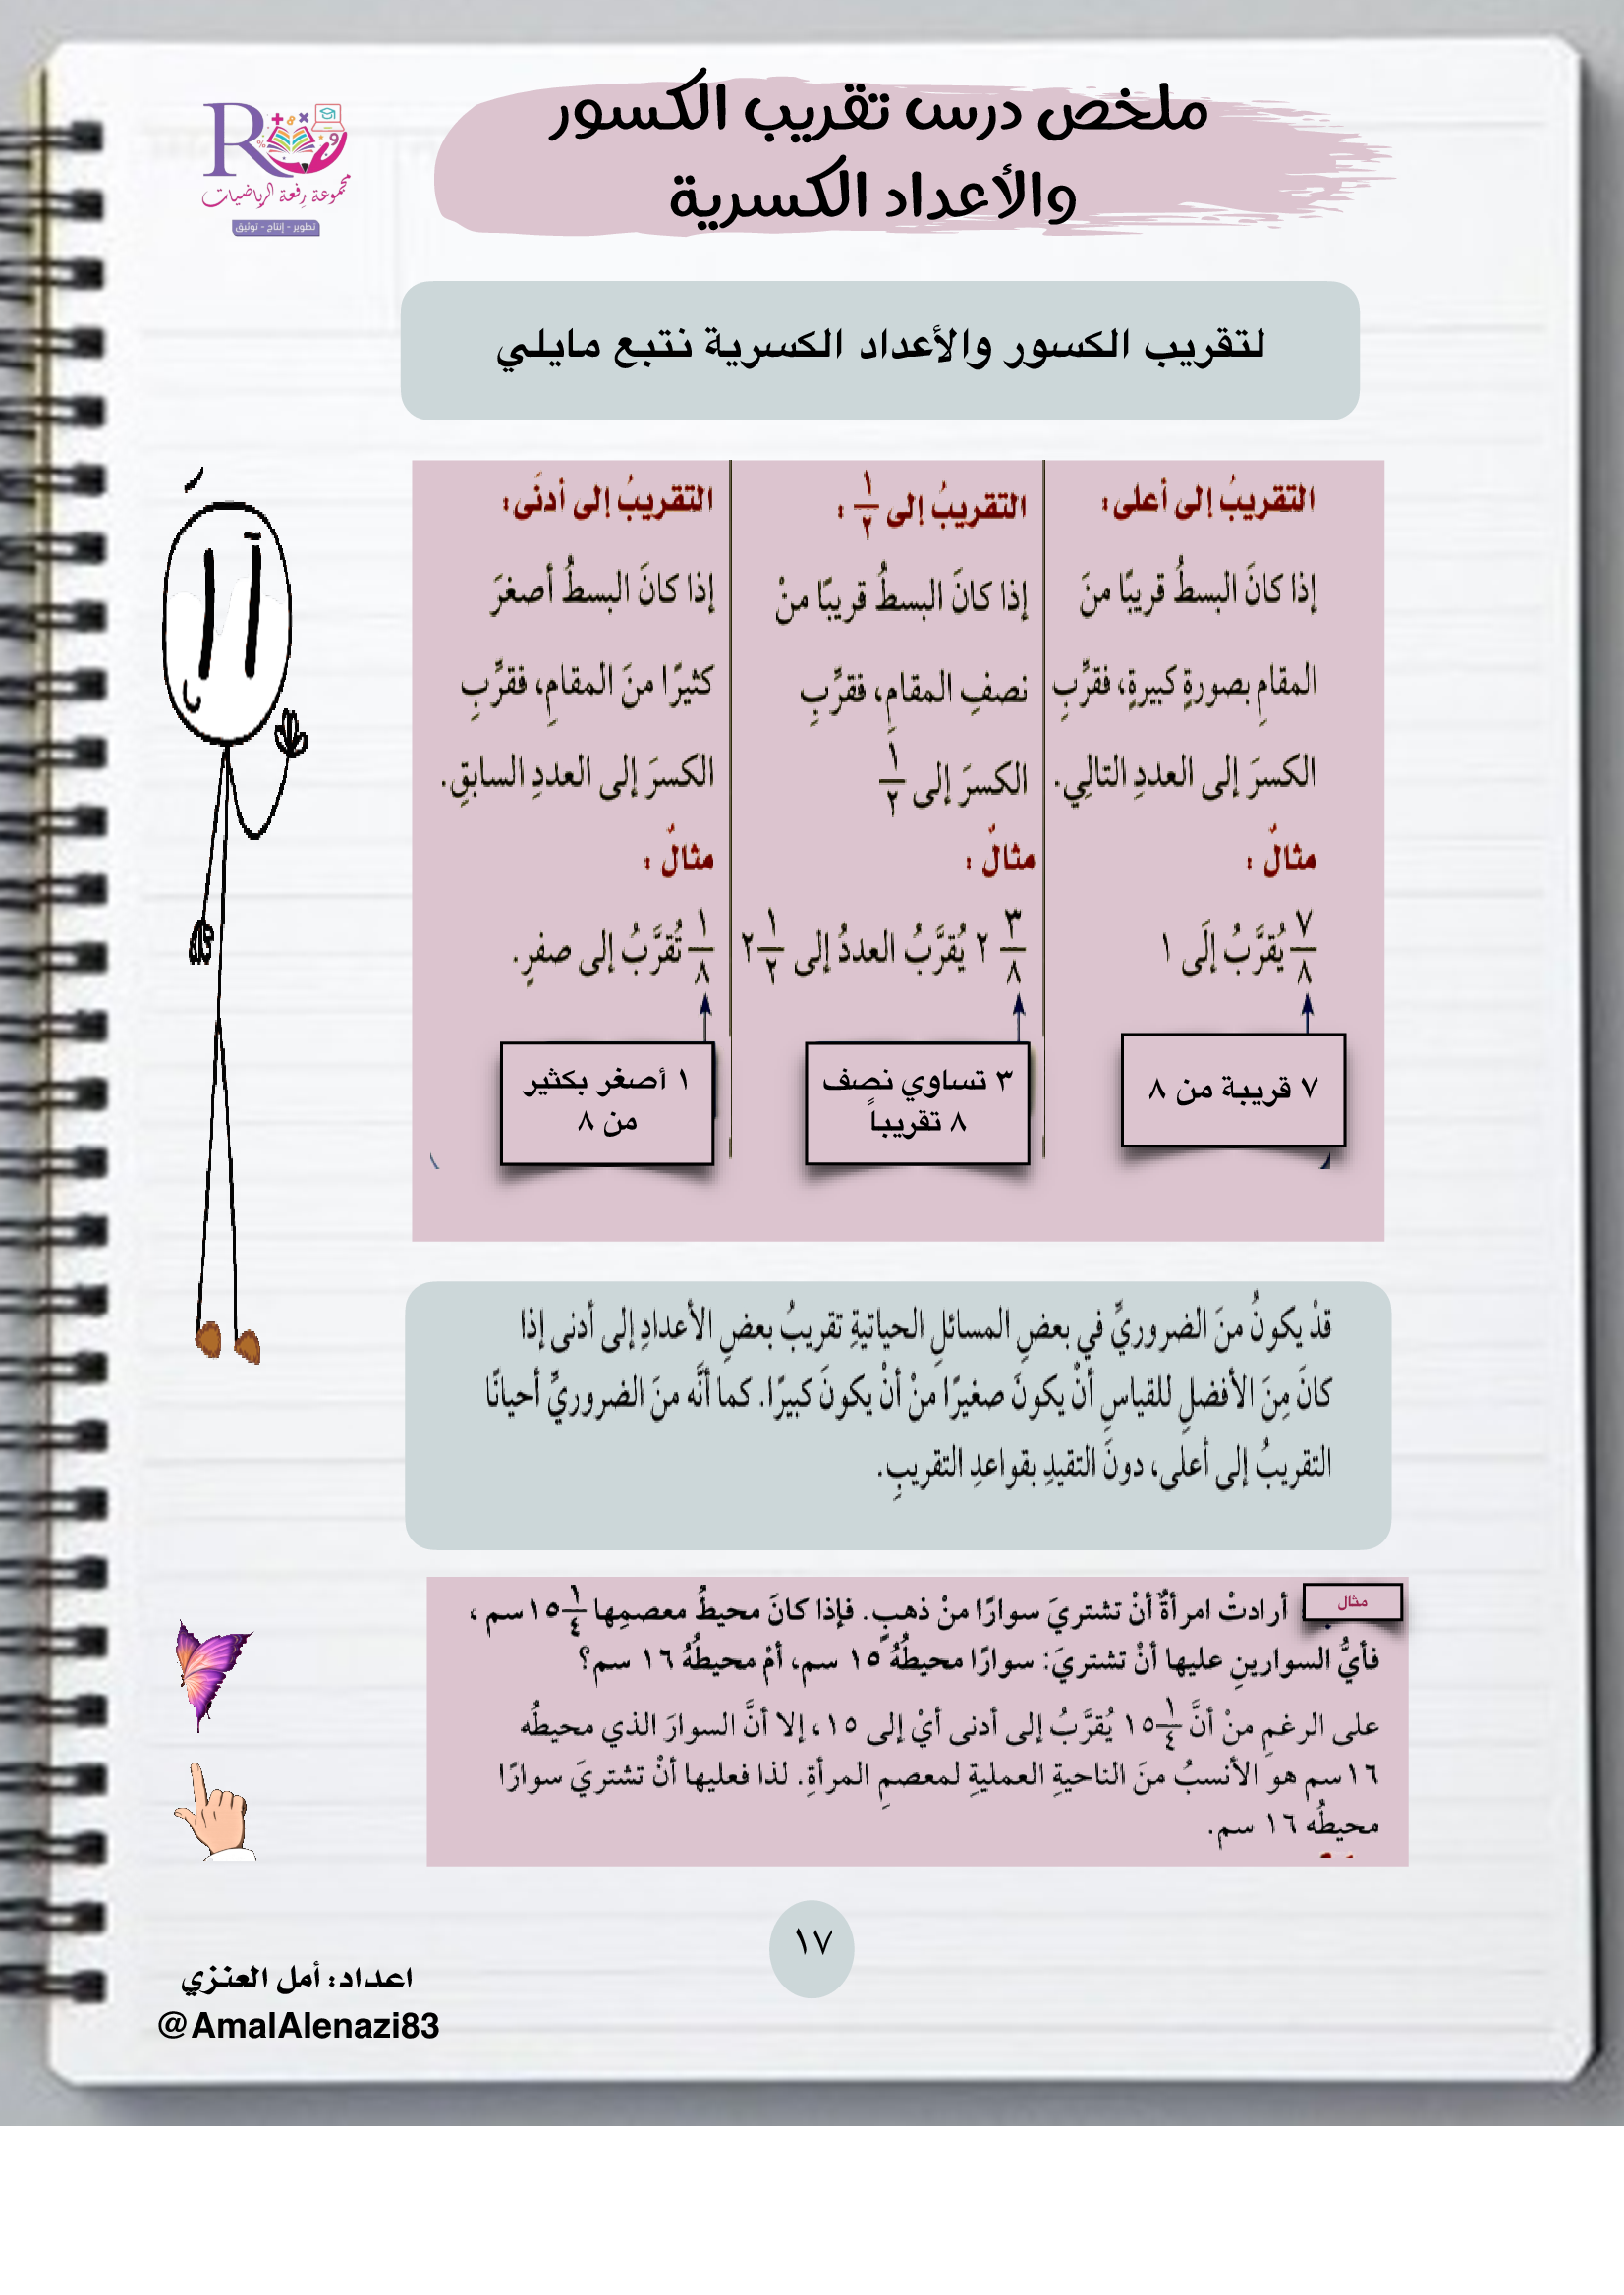 ملخص درس تقريب الكسور
والأعداد الكسرية
R
مجموعة رفعة الرياضيات
تطوير - إنتاج - توثيق
لتقريب الكسور والأعداد الكسرية نتبع مايلي
التقريبُ إلى أعلى:
إذا كانَ البسطُ قريبًا منَ
المقامِ بصورةٍ كبيرةٍ، فقرِّبِ
الكسرَ إلى العددِ التالِي.
مثالٌ :
٧/٨ يُقرَّبُ إلَى ١
٧ قريبة من ٨
التقريبُ إلى ١/٢ :
إذا كانَ البسطُ قريبًا منْ
نصفِ المقامِ، فقرِّبِ
الكسرَ إلى ١/٢
مثالٌ :
٢ ٣/٨ يُقرَّبُ العددُ إلى ٢ ١/٢
٣ تساوي نصف
٨ تقريباً
التقريبُ إلى أدنَى:
إذا كانَ البسطُ أصغرَ
كثيرًا منَ المقامِ، فقرِّبِ
الكسرَ إلى العددِ السابقِ.
مثالٌ :
١/٨ تُقرَّبُ إلى صفرٍ.
١ أصغر بكثير
من ٨
قدْ يكونُ منَ الضروريِّ في بعضِ المسائلِ الحياتيةِ تقريبُ بعضِ الأعدادِ إلى أدنى إذا
كانَ مِنَ الأفضلِ للقياسِ أنْ يكونَ صغيرًا منْ أنْ يكونَ كبيرًا. كما أنَّه منَ الضروريِّ أحيانًا
التقريبُ إلى أعلى، دونَ التقيدِ بقواعدِ التقريبِ.
مثال
أرادتْ امرأةٌ أنْ تشتريَ سوارًا منْ ذهبٍ. فإذا كانَ محيطُ معصمِها ١٥ ١/٤ سم ،
فأيُّ السوارينِ عليها أنْ تشتريَ: سوارًا محيطُهُ ١٥ سم، أمْ محيطُهُ ١٦ سم؟
على الرغمِ منْ أنَّ ١٥ ١/٤ يُقرَّبُ إلى أدنى أيْ إلى ١٥، إلا أنَّ السوارَ الذي محيطُه
١٦سم هو الأنسبُ منَ الناحيةِ العمليةِ لمعصمِ المرأةِ. لذا فعليها أنْ تشتريَ سوارًا
محيطُه ١٦ سم.
١٧
اعداد: أمل العنزي
@AmalAlenazi83